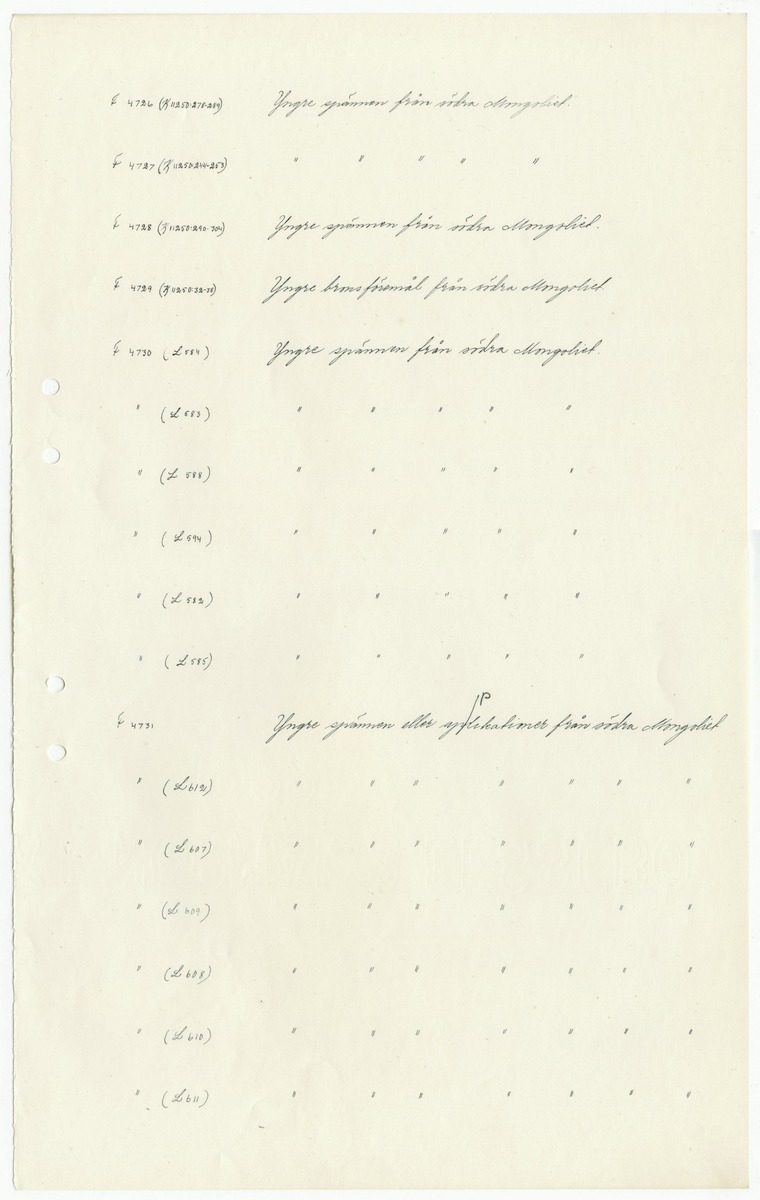 F 4726 (K 11250:278-289) Yngre spännen från södra Mongoliet.
F 4727 (K 11250:244-253) " " " " "
F 4728 (K 11250:290-304) Yngre spännen från södra Mongoliet.
F 4729 (K 11250:32-38) Yngre bronsföremål från södra Mongoliet.
F 4730 (L 584) Yngre spännen från södra Mongoliet.
" (L 583) " " " " "
" (L 588) " " " " "
" (L 594) " " " " "
" (L 582) " " " " "
" (L 585) " " " " "
F 4731 Yngre spännen eller applikationer från södra Mongoliet
" (L 612) " " " " " " "
" (L 607) " " " " " " "
" (L 609) " " " " " " "
" (L 608) " " " " " " "
" (L 610) " " " " " " "
" (L 611) " " " " " " "